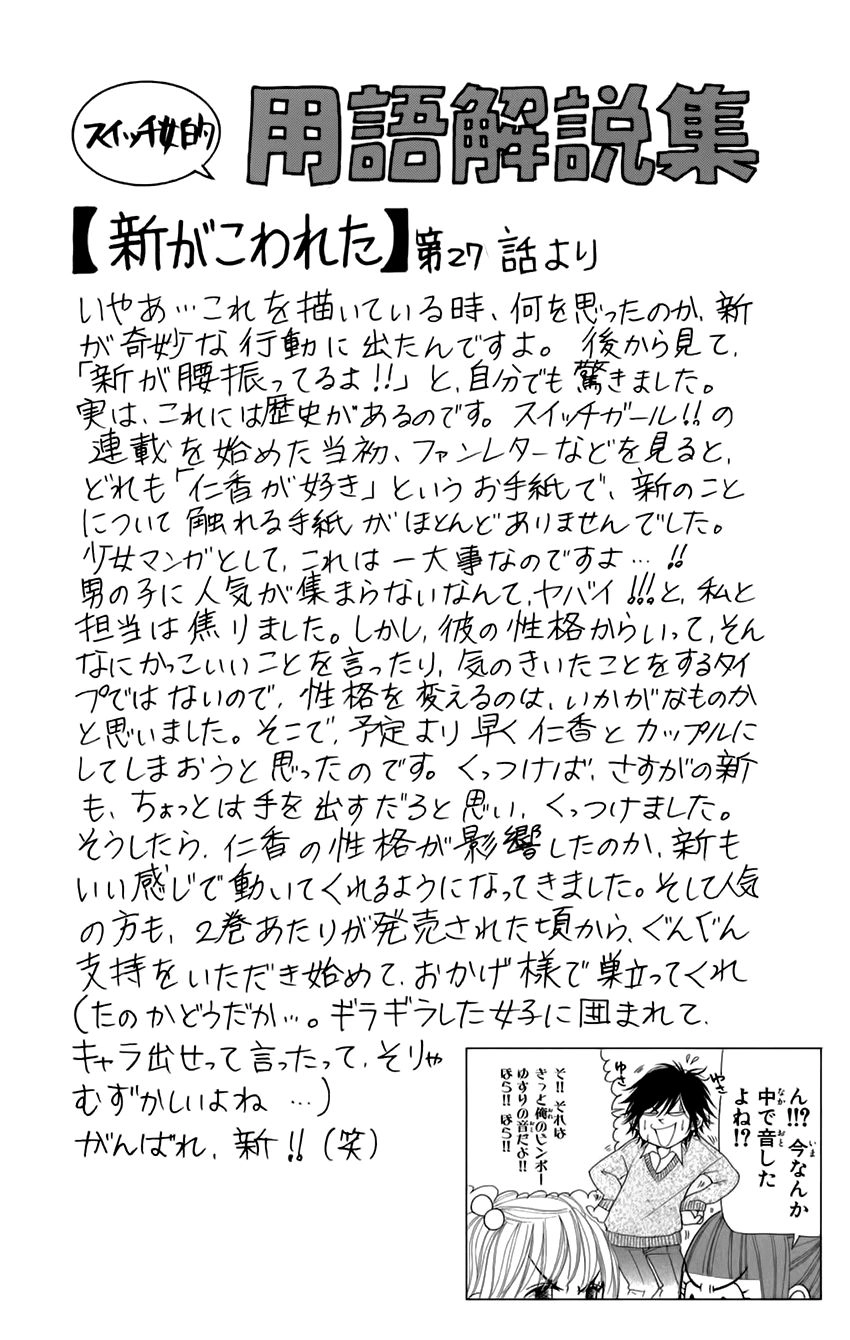 スイッチ女的
用語解説集
【新がこわれた】第27話より
いやあ…これを描いている時、何を思ったのか、新
が奇妙な行動に出たんですよ。後から見て、
「新が腰振ってるよ!!」と、自分でも驚きました。
実は、これには歴史があるのです。スイッチガール!!の
連載を始めた当初、ファンレターなどを見ると、
どれも「仁香が好き」というお手紙で、新のこと
について触れる手紙がほとんどありませんでした。
少女マンガとして、これは一大事なのですよ…!!
男の子に人気が集まらないなんて、ヤバイ!!!と、私と
担当は焦りました。しかし、彼の性格からいって、そん
なにかっこいいことを言ったり、気のきいたことをするタイ
プではないので、性格を変えるのは、いかがなものか
と思いました。そこで、予定より早く仁香とカップルに
してしまおうと思ったのです。くっつけば、さすがの新
も、ちょっとは手を出すだろと思い、くっつけました。
そうしたら、仁香の性格が影響したのか、新も
いい感じで動いてくれるようになってきました。そして人気
の方も、2巻あたりが発売された頃から、ぐんぐん
支持をいただき始めて、おかげ様で巣立ってくれ
(たのかどうだか…。ギラギラした女子に囲まれて、
キャラ出せって言ったって、そりゃ
むずかしいよね…)
がんばれ、新!!(笑)
ん!!?今なんか
中で音した
よね!?
いま
なか
おと
ゆさ
ゆさ
そ!!それは
きっと俺のビンボー
ゆすりの音だよ!!
ほら!!ほら!!
おれ
おと